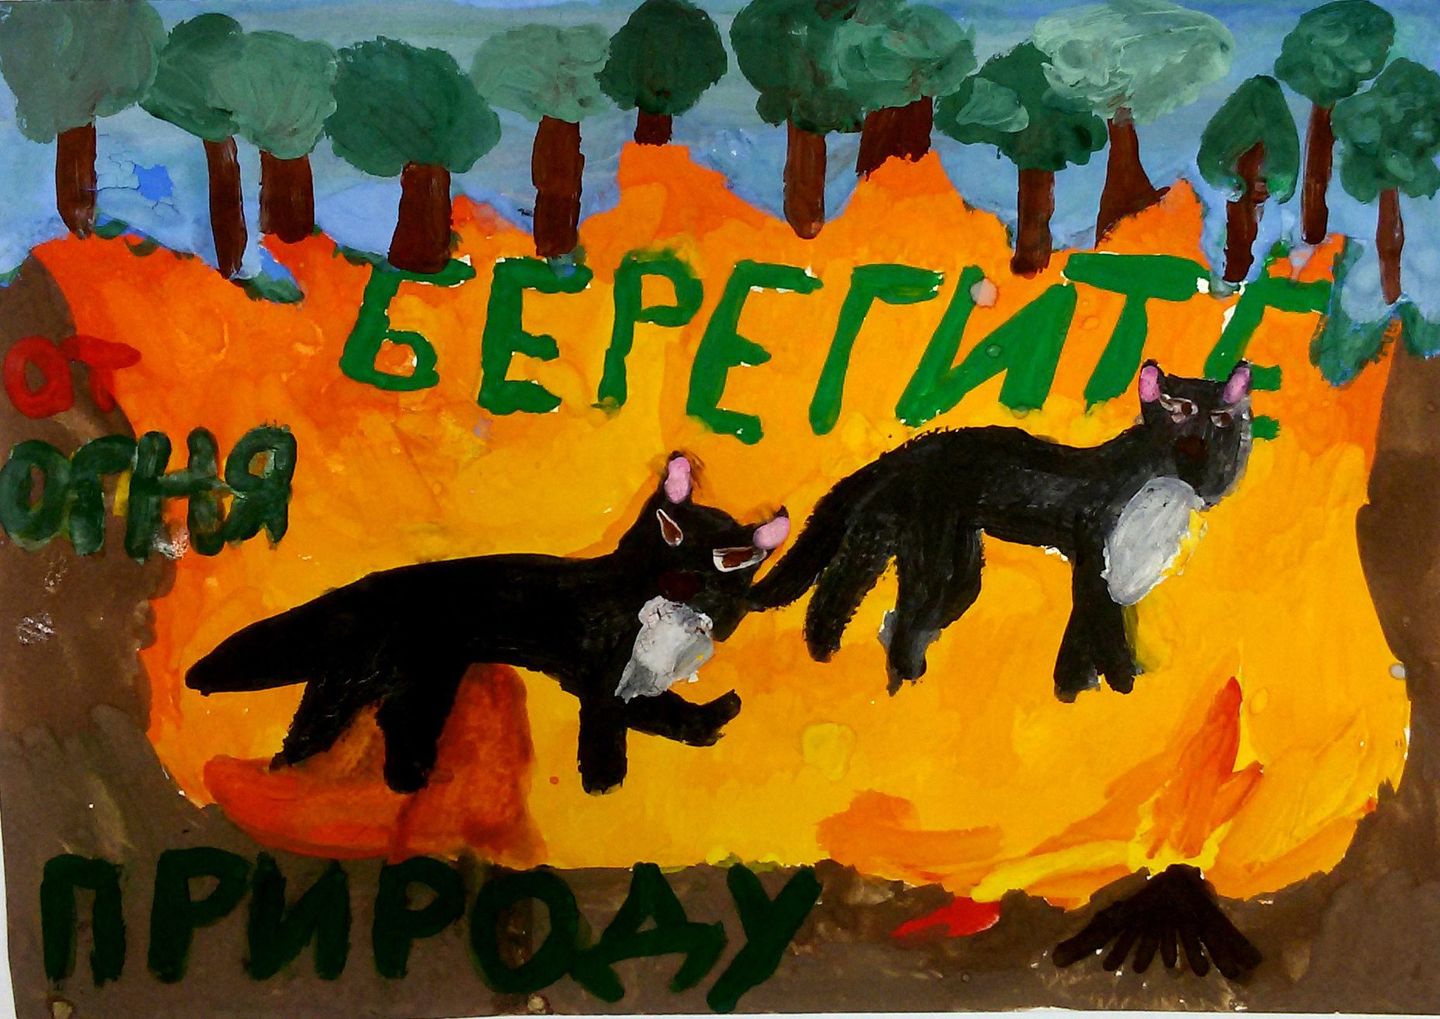 БЕРЕГИТЕ
ОТ
ОГНЯ
ПРИРОДУ